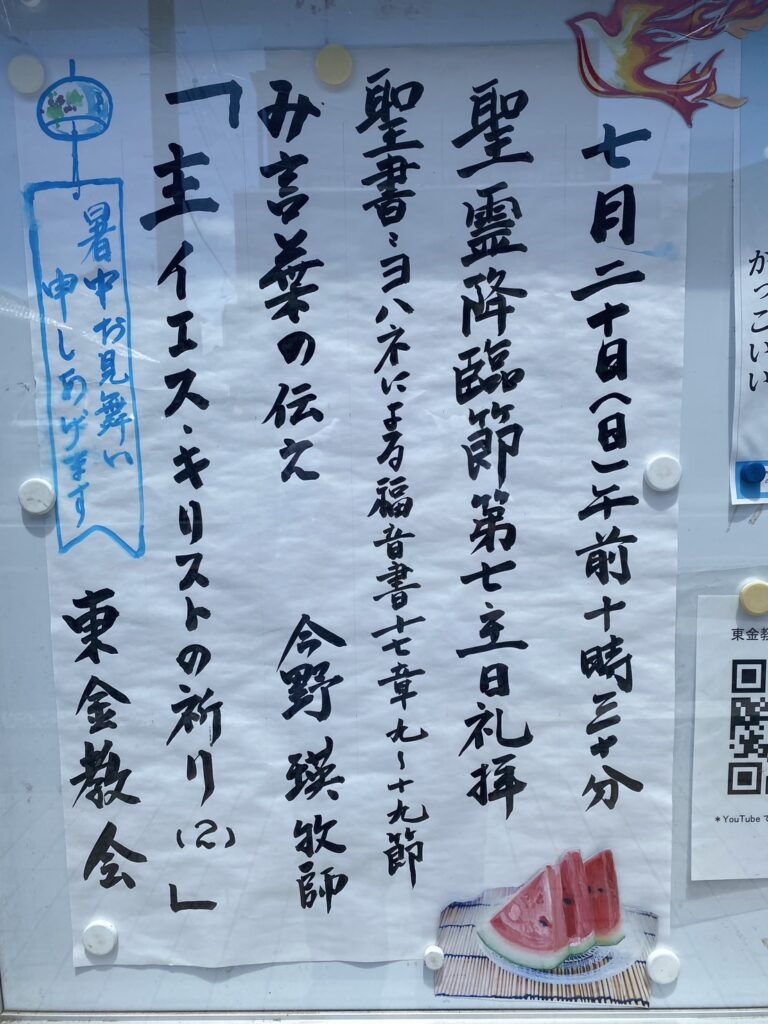 七月二十日(日)午前十時三十分
聖霊降臨節第七主日礼拝
聖書:ヨハネによる福音書十七章九~十九節
み言葉の伝え 今野 瑛牧師
「主イエス・キリストの祈り(2)」
暑中お見舞い
申しあげます
東金教会
がっこいい
東金教
*YouTubeで